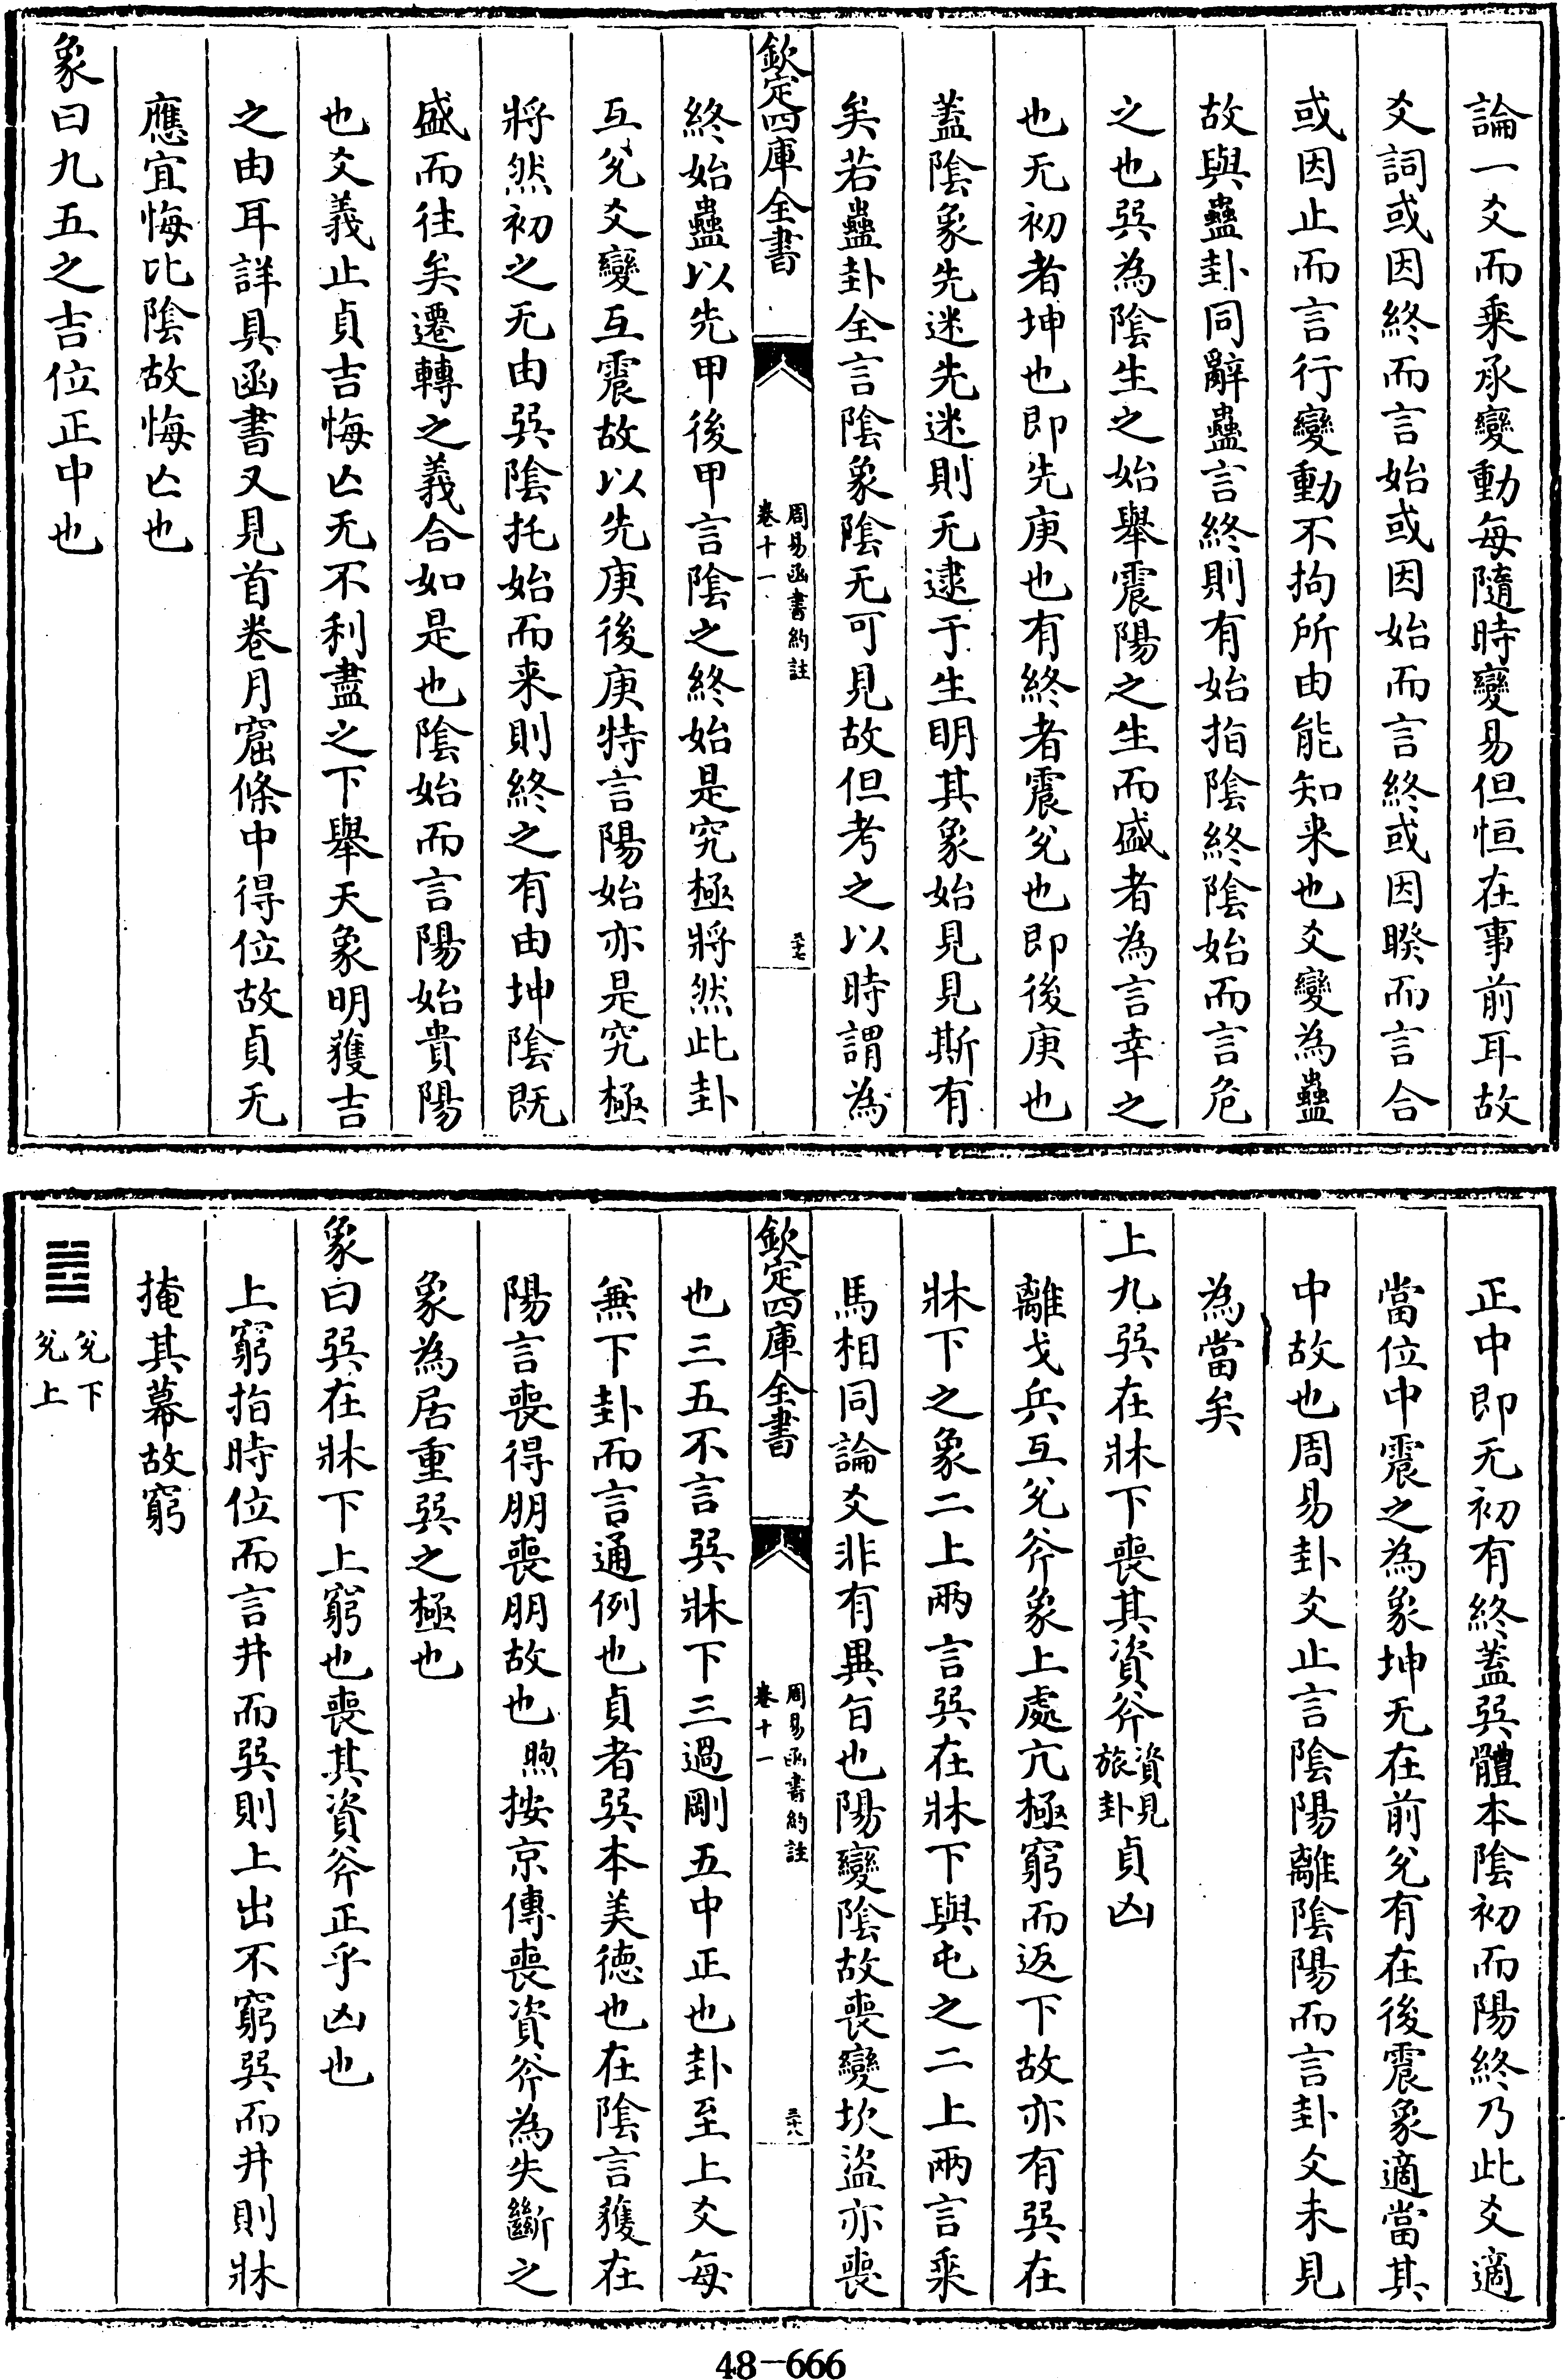 論一爻而乘承變動每隨時變易但恒在事前耳故
爻詞或因終而言始或因始而言終或因睽而言合
或因止而言行變動不拘所由能知来也爻變為蠱
故與蠱卦同辭蠱言終則有始指陰終陰始而言危
之也巽為陰生之始舉震陽之生而盛者為言幸之
也无初者坤也即先庚也有終者震兌也即後庚也
蓋陰象先迷先迷則无逮于生明其象始見見斯有
矣若蠱卦全言陰象陰无可見故但考之以時謂為
欽定四庫全書
周易函書約註
卷十一
三十七
終始蠱以先甲後甲言陰之終始是究極將然此卦
互兌爻變互震故以先庚後庚特言陽始亦是究極
將然初之无由巽陰托始而来則終之有由坤陰既
盛而往矣遷轉之義合如是也陰始而言陽始貴陽
也爻義止貞吉悔亾无不利盡之下舉天象明獲吉
之由耳詳具函書又見首卷月窟條中得位故貞无
應宜悔比陰故悔亾也
象曰九五之吉位正中也
正中即无初有終蓋巽體本陰初而陽終乃此爻適
當位中震之為象坤无在前兌有在後震象適當其
中故也周易卦爻止言陰陽離陰陽而言卦爻未見
為當矣
上九巽在牀下喪其資斧資見旅卦貞凶
離戈兵互兌斧象上處亢極窮而返下故亦有巽在
牀下之象二上兩言巽在牀下與屯之二上兩言乘
馬相同論爻非有異旨也陽變陰故喪變坎盜亦喪
欽定四庫全書
周易函書約註
卷十一
三十八
也三五不言巽牀下三過剛五中正也卦至上爻每
無下卦而言通例也貞者巽本美德也在陰言獲在
陽言喪得朋喪朋故也 煦按京傳喪資斧為失斷之
象為居重巽之極也
象曰巽在牀下上窮也喪其資斧正乎凶也
上窮指時位而言井而巽則上出不窮巽而井則牀
掩其幕故窮
兌下
兌上
48-666